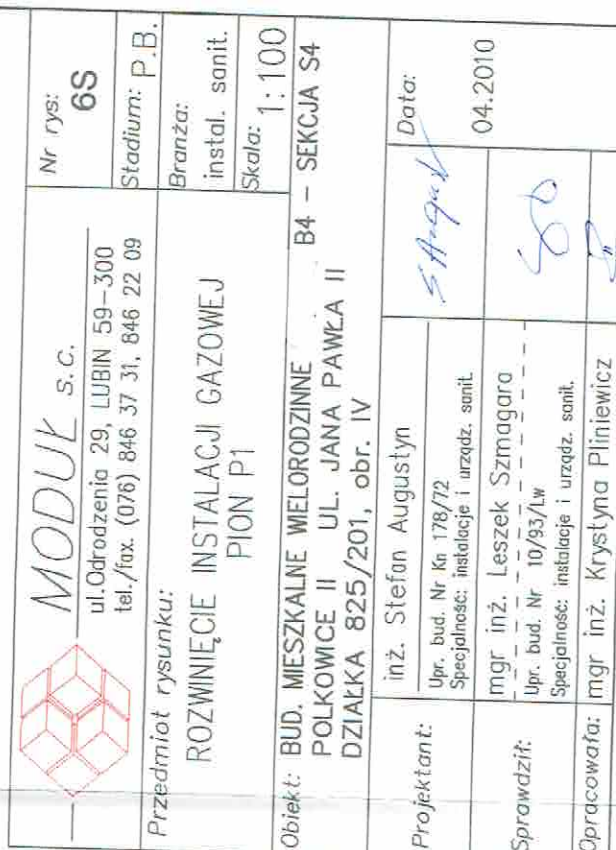 MODUŁ s.c.
ul.Odrodzenia 29, LUBIN 59-300
tel./fax. (076) 846 37 31, 846 22 09
Nr rys:
6S
Przedmiot rysunku:
ROZWINIĘCIE INSTALACJI GAZOWEJ
PION P1
Stadium: P.B.
Branża:
instal. sanit.
Skala: 1:100
Obiekt: BUD. MIESZKALNE WIELORODZINNE B4 – SEKCJA S4
POLKOWICE II UL. JANA PAWŁA II
DZIAŁKA 825/201, obr. IV
Projektant:
inż. Stefan Augustyn
Upr. bud. Nr Kn 178/72
Specjalność: instalacje i urządz. sanit.
Data:
04.2010
Sprawdził:
mgr inż. Leszek Szmagara
Upr. bud. Nr 10/93/Lw
Specjalność: instalacje i urządz. sanit.
Opracowała: mgr inż. Krystyna Pliniewicz